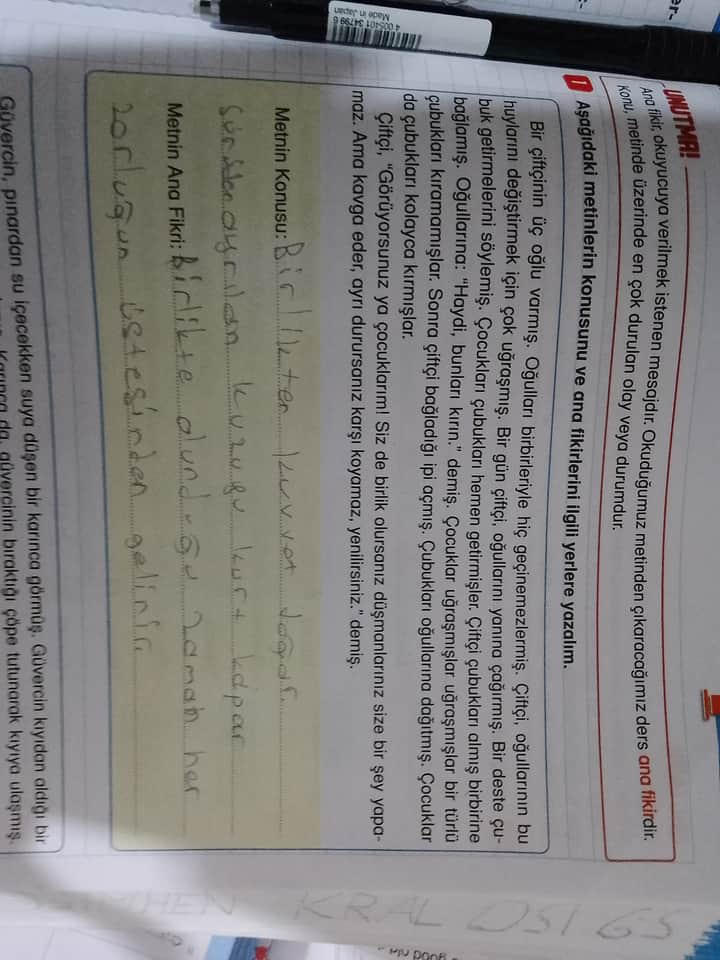 UNUTMA!
Ana fikir, okuyucuya verilmek istenen mesajdır. Okuduğumuz metinden çıkaracağımız ders ana fikirdir.
Konu, metinde üzerinde en çok durulan olay veya durumdur.
1 Aşağıdaki metinlerin konusunu ve ana fikirlerini ilgili yerlere yazalım.
Bir çiftçinin üç oğlu varmış. Oğulları birbirleriyle hiç geçinemezlermiş. Çiftçi, oğullarının bu
huylarını değiştirmek için çok uğraşmış. Bir gün çiftçi, oğullarını yanına çağırmış. Bir deste çu-
buk getirmelerini söylemiş. Çocukları çubukları hemen getirmişler. Çiftçi çubukları almış birbirine
bağlamış. Oğullarına: "Haydi, bunları kırın." demiş. Çocuklar uğraşmışlar uğraşmışlar bir türlü
çubukları kıramamışlar. Sonra çiftçi bağladığı ipi açmış. Çubukları oğullarına dağıtmış. Çocuklar
da çubukları kolayca kırmışlar.
Çiftçi, "Görüyorsunuz ya çocuklarım! Siz de birlik olursanız düşmanlarınız size bir şey yapa-
maz. Ama kavga eder, ayrı durursanız karşı koyamaz, yenilirsiniz." demiş.
Metnin Konusu: Birlikten kuvvet doğar.
Sürüden ayrılan kuzuyu kurt kapar
Metnin Ana Fikri: Birlikte olunduğu zaman her
zorluğun üstesinden gelinir.
Güvercin, pınardan su içecekken suya düşen bir karınca görmüş. Güvercin kıyıdan aldığı bir
Karınca da, güvercinin bıraktığı çöpe tutunarak kıyıya ulaşmış.
Made in Japan
KRAL